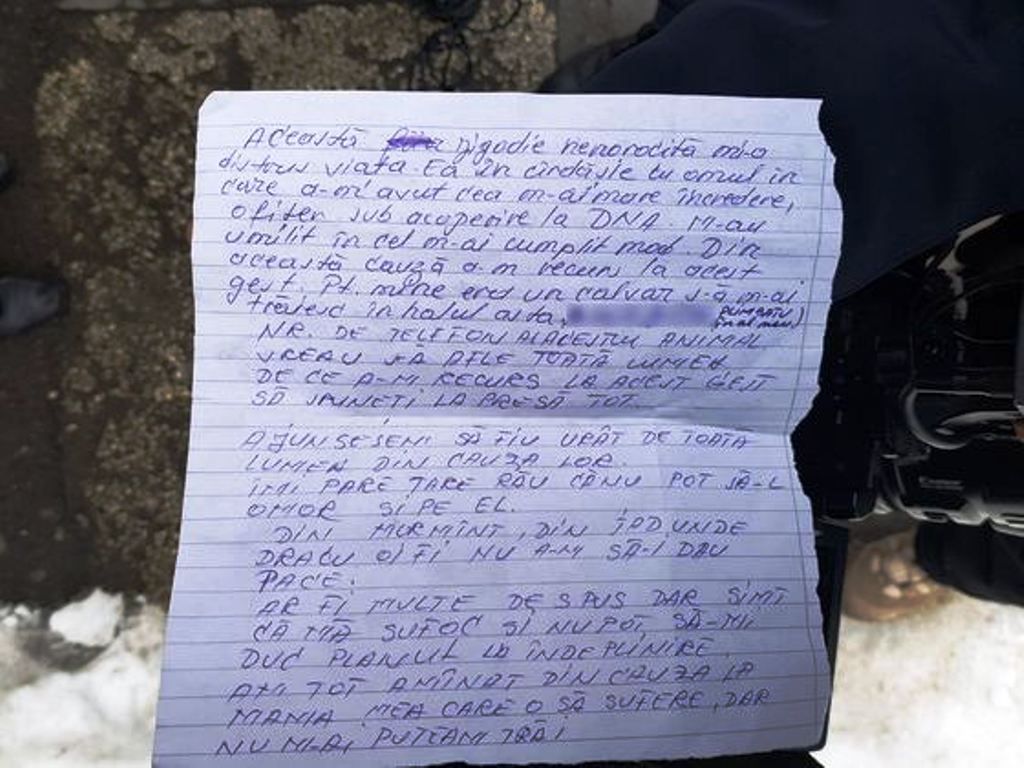 Această jigodie nenorocită mi-a
distrus viața. Ea în cîrdășie cu omul în
care a-m avut cea m-ai mare încredere,
ofițer sub acoperire la DNA. M-au
umilit în cel m-ai cumplit mod. Din
această cauză a-m recurs la acest
gest. Pt. mine era un calvar s-ă m-ai
trăiesc în halul asta,
NR. DE TELEFON AL ACESTUI ANIMAL
VREAU SĂ AFLE TOATĂ LUMEA
DE CE A-M RECURS LA ACEST GEST
SĂ SPUNEȚI LA PRESĂ TOT.
AJUNSESEM SĂ FIU URÂT DE TOATĂ
LUMEA DIN CAUZA LOR.
ÎMI PARE TARE RĂU CĂ NU POT SĂ-L
OMOR SI PE EL.
DIN MORMÎNT, DIN IAD UNDE
DRACU OI FI NU A-M SĂ-I DAU
PACE.
AR FI MULTE DE SPUS DAR SIMT
CĂ MĂ SUFOC SI NU POT SĂ-MI
DUC PLANUL LA ÎNDEPLINIRE.
AM TOT AMÎNAT DIN CAUZA LA
MAMA MEA CARE O SĂ SUFERE, DAR
NU M-AI PUTEAM TRĂI